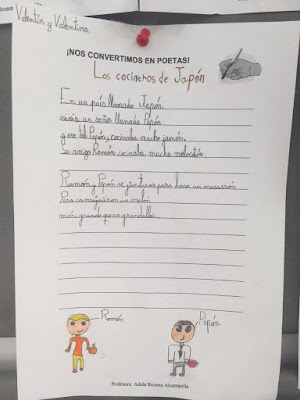 Valentín y Valentina
¡NOS CONVERTIMOS EN POETAS!
Los cocineros de Japón
En un país llamado Japón
vivía un señor llamado Pepón
y ese tal Pepón, cocinaba mucho jamón.
Su amigo Ramón cocinaba mucho melocotón.
Ramón y Pepón se juntaron para hacer un macarrón
Pero consiguieron un melón
más grande que un grandullón.
Ramón
Pepón
Profesora: Adela Alcantarilla